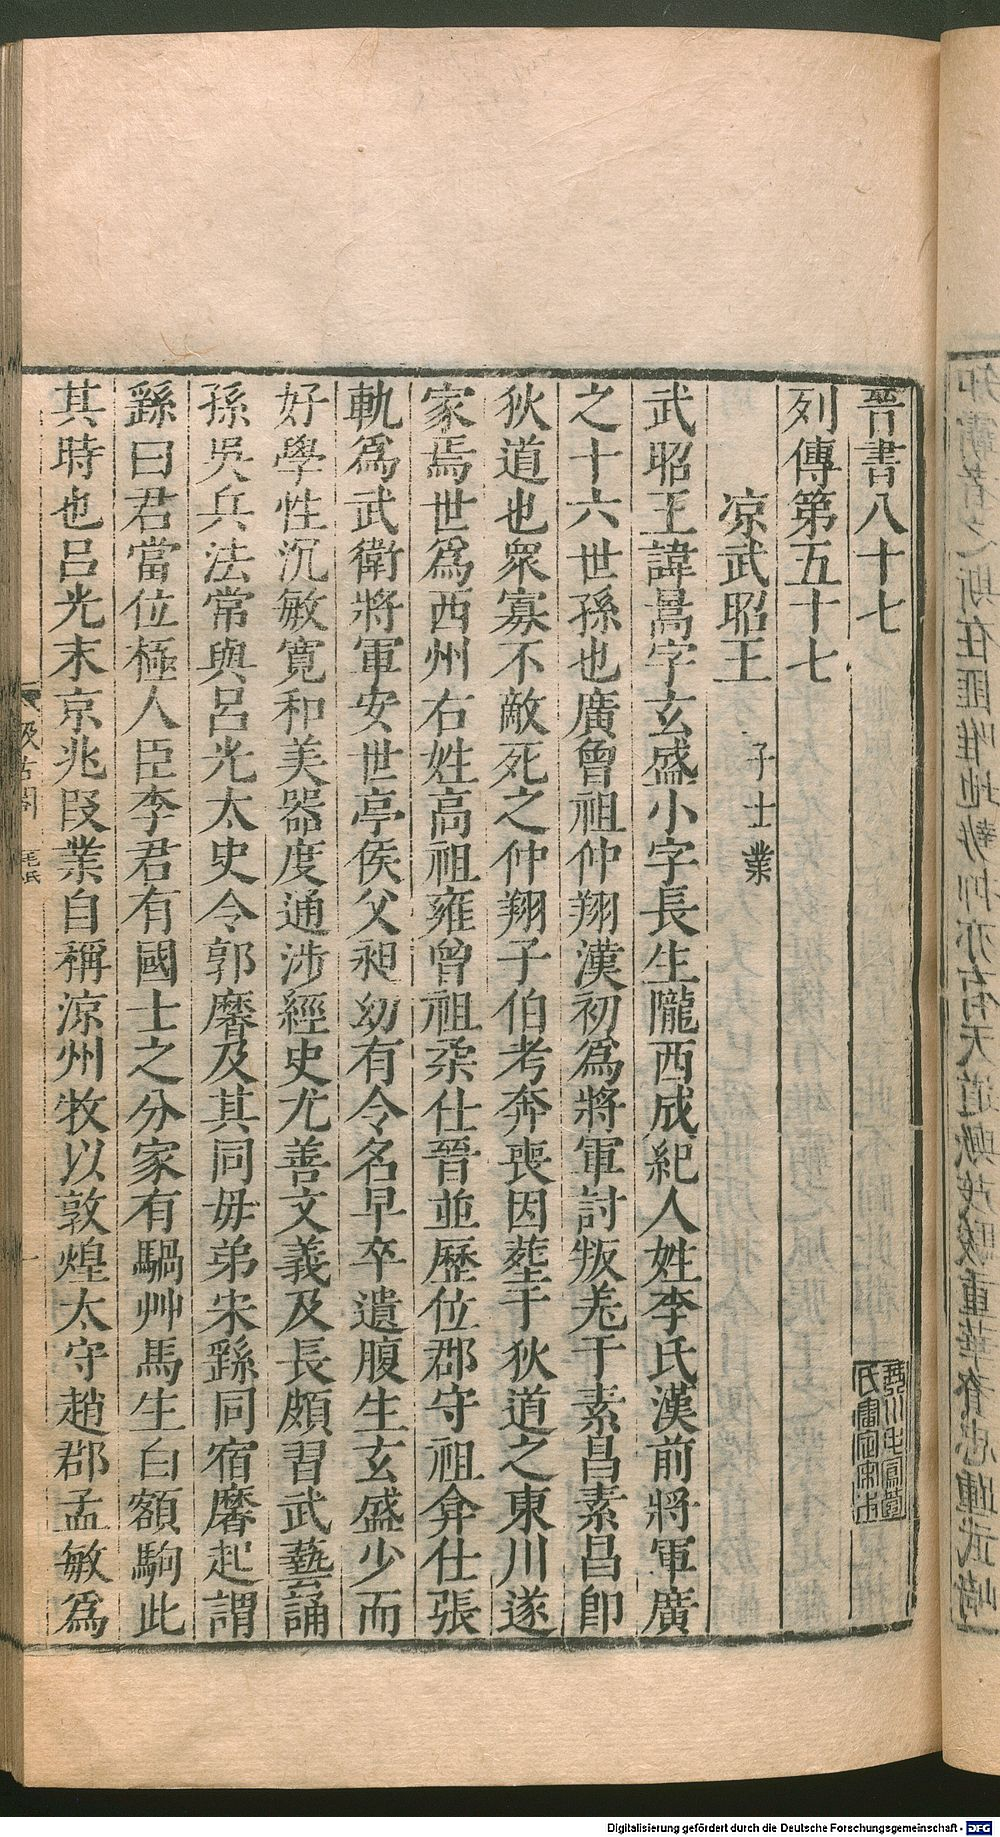 晉書八十七
列傳第五十七
凉武昭王 子士業
武昭王諱暠字玄盛小字長生隴西成紀人姓李氏漢前將軍廣
之十六世孫也廣曾祖仲翔漢初爲將軍討叛羌于素昌素昌卽
狄道也衆寡不敵死之仲翔子伯考奔喪因塟于狄道之東川遂
家焉世爲西州右姓高祖雍曾祖柔仕晉並歷位郡守祖弇仕張
軌爲武衛將軍安世亭侯父昶幼有令名早卒遺腹生玄盛少而
好學性沉敏寬和美器度通涉經史尤善文義及長頗習武藝誦
孫吳兵法常與呂光太史令郭黁及其同母弟宋繇同宿黁起謂
繇曰君當位極人臣李君有國士之分家有騧艸馬生白額駒此
其時也呂光末京兆叚業自稱涼州牧以敦煌太守趙郡孟敏爲
汲古閣
毛氏
Digitalisierung gefördert durch die Deutsche Forschungsgemeinschaft - DFG